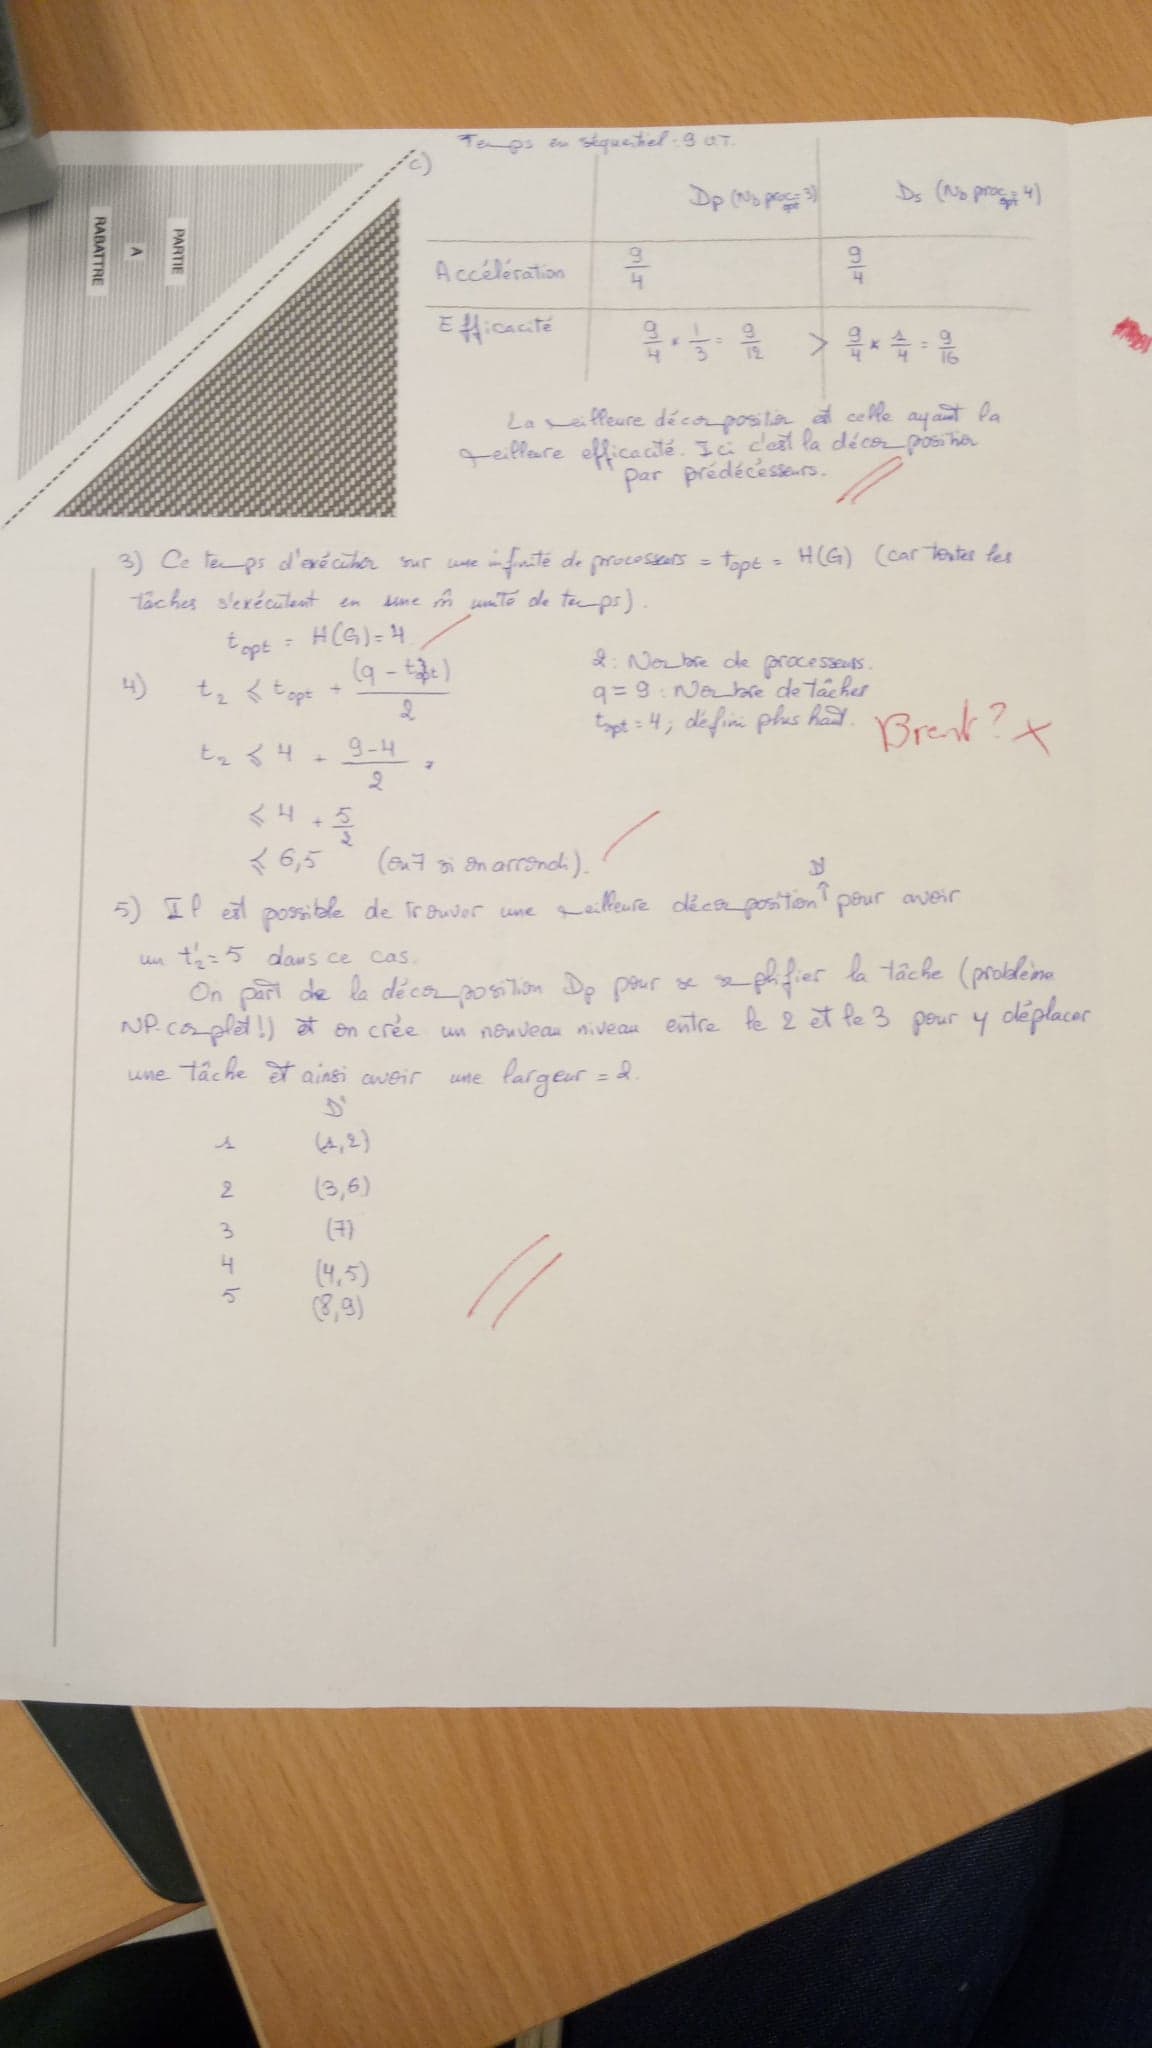 PARTIE
A
RABATTRE
c)
Temps en séquentiel : 9 U.T.
Dp (Nb proc opt = 3)
Ds (Nb proc opt = 4)
Accélération 9/4 9/4
Efficacité 9/4 * 1/3 = 9/12 > 9/4 * 1/4 = 9/16
La meilleure décomposition est celle ayant la
meilleure efficacité. Ici c'est la décomposition
par prédécesseurs.
3) Ce temps d'exécution sur une infinité de processeurs = topt = H(G) (car toutes les
tâches s'exécutent en une m̂ unité de temps).
topt = H(G) = 4
4) t2 ⩽ topt + (q - topt)/2
2 : Nombre de processeurs.
q = 9 : Nombre de tâches
topt = 4, défini plus haut.
Brent ? x
t2 ⩽ 4 + (9-4)/2
⩽ 4 + 5/2
⩽ 6,5 (ou 7 si on arrondi).
5) Il est possible de trouver une meilleure décomposition D' pour avoir
un t'2 = 5 dans ce cas.
On part de la décomposition Dp pour se simplifier la tâche (problème
NP-complet !) et on crée un nouveau niveau entre le 2 et le 3 pour y déplacer
une tâche et ainsi avoir une largeur = 2.
D'
1 (1,2)
2 (3,6)
3 (7)
4 (4,5)
5 (8,9)